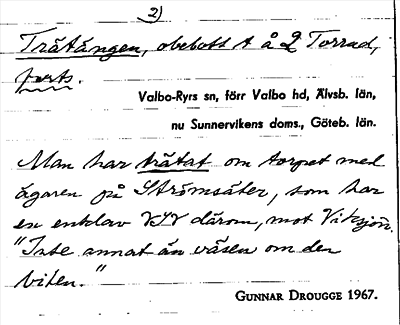 2)
Trätången, obebott t å 2 Torrud,
forts.
Valbo-Ryrs sn, förr Valbo hd, Älvsb. län,
nu Sunnervikens doms., Göteb. län.
Man har trätat om torpet med
ägaren på Strömsäter, som har
en enklav VSV därom, mot Viksjön.
"Inte annat än väsen om den
biten."
GUNNAR DROUGGE 1967.